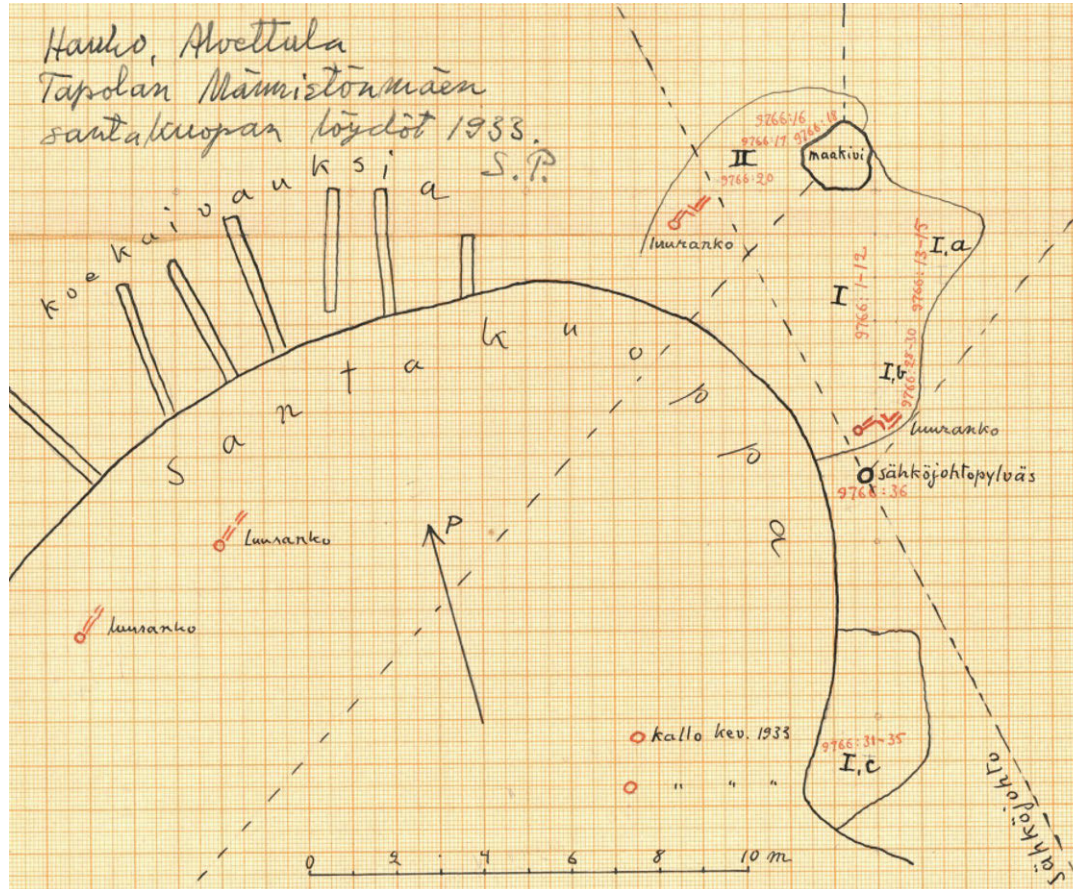 Hauho, Alvettula
Tapolan Männistönmäen
santakuopan löydöt 1933.
S. P.
koekaivauksia
9766:16
9766:18
9766:17
II
maakivi
9766:20
luuranko
I,a
9766:13-15
I
9766:1-12
I,b
9766:28-30
luuranko
santakuoppa
sähköjohtopylväs
9766:36
P
luuranko
luuranko
kallo kev. 1933
" " "
9766:31-35
I,c
sähköjohto
0 2 4 6 8 10 m